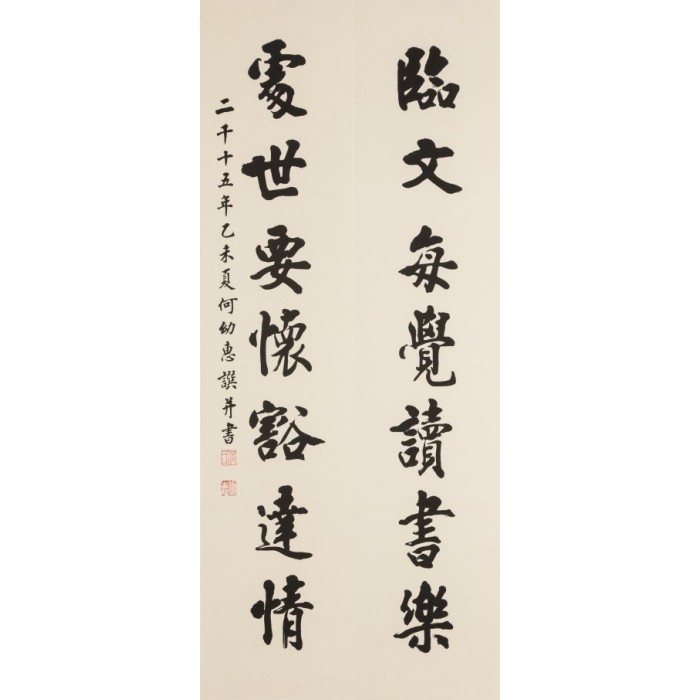 臨文每覺讀書樂
處世要懷豁達情
二千十五年乙未夏何幼惠譔并書